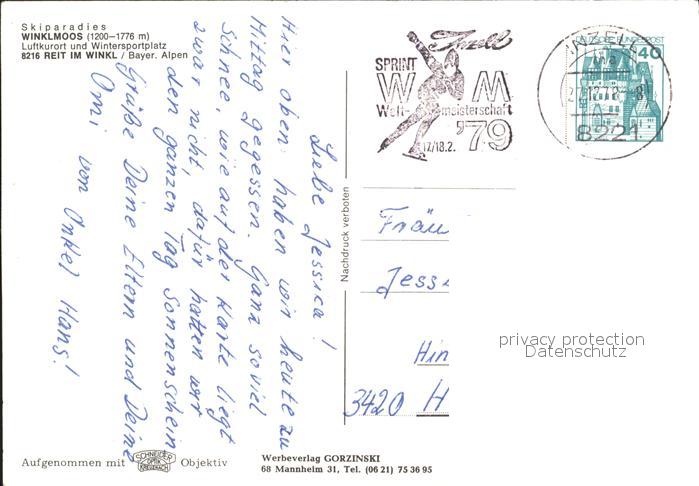 Skiparadies
WINKLMOOS (1200—1776 m)
Luftkurort und Wintersportplatz
8216 REIT IM WINKL / Bayer. Alpen
Liebe Jessica!
Hier oben haben wir heute zu
Mittag gegessen. Ganz soviel
Schnee, wie auf der Karte liegt
zwar nicht, dafür hatten wir
den ganzen Tag Sonnenschein
Grüße Deine Eltern und Deine
Omi von Onkel Hans!
Inzell
SPRINT
WM
Welt- meisterschaft
17/18.2. '79
INZELL
8221
DEUTSCHE BUNDESPOST
40
Nachdruck verboten
Fräu
Jess
Hin
3420 H
privacy protection
Datenschutz
Aufgenommen mit SCHNEIDER OPTIK KREUZNACH Objektiv
Werbeverlag GORZINSKI
68 Mannheim 31, Tel. (06 21) 75 36 95